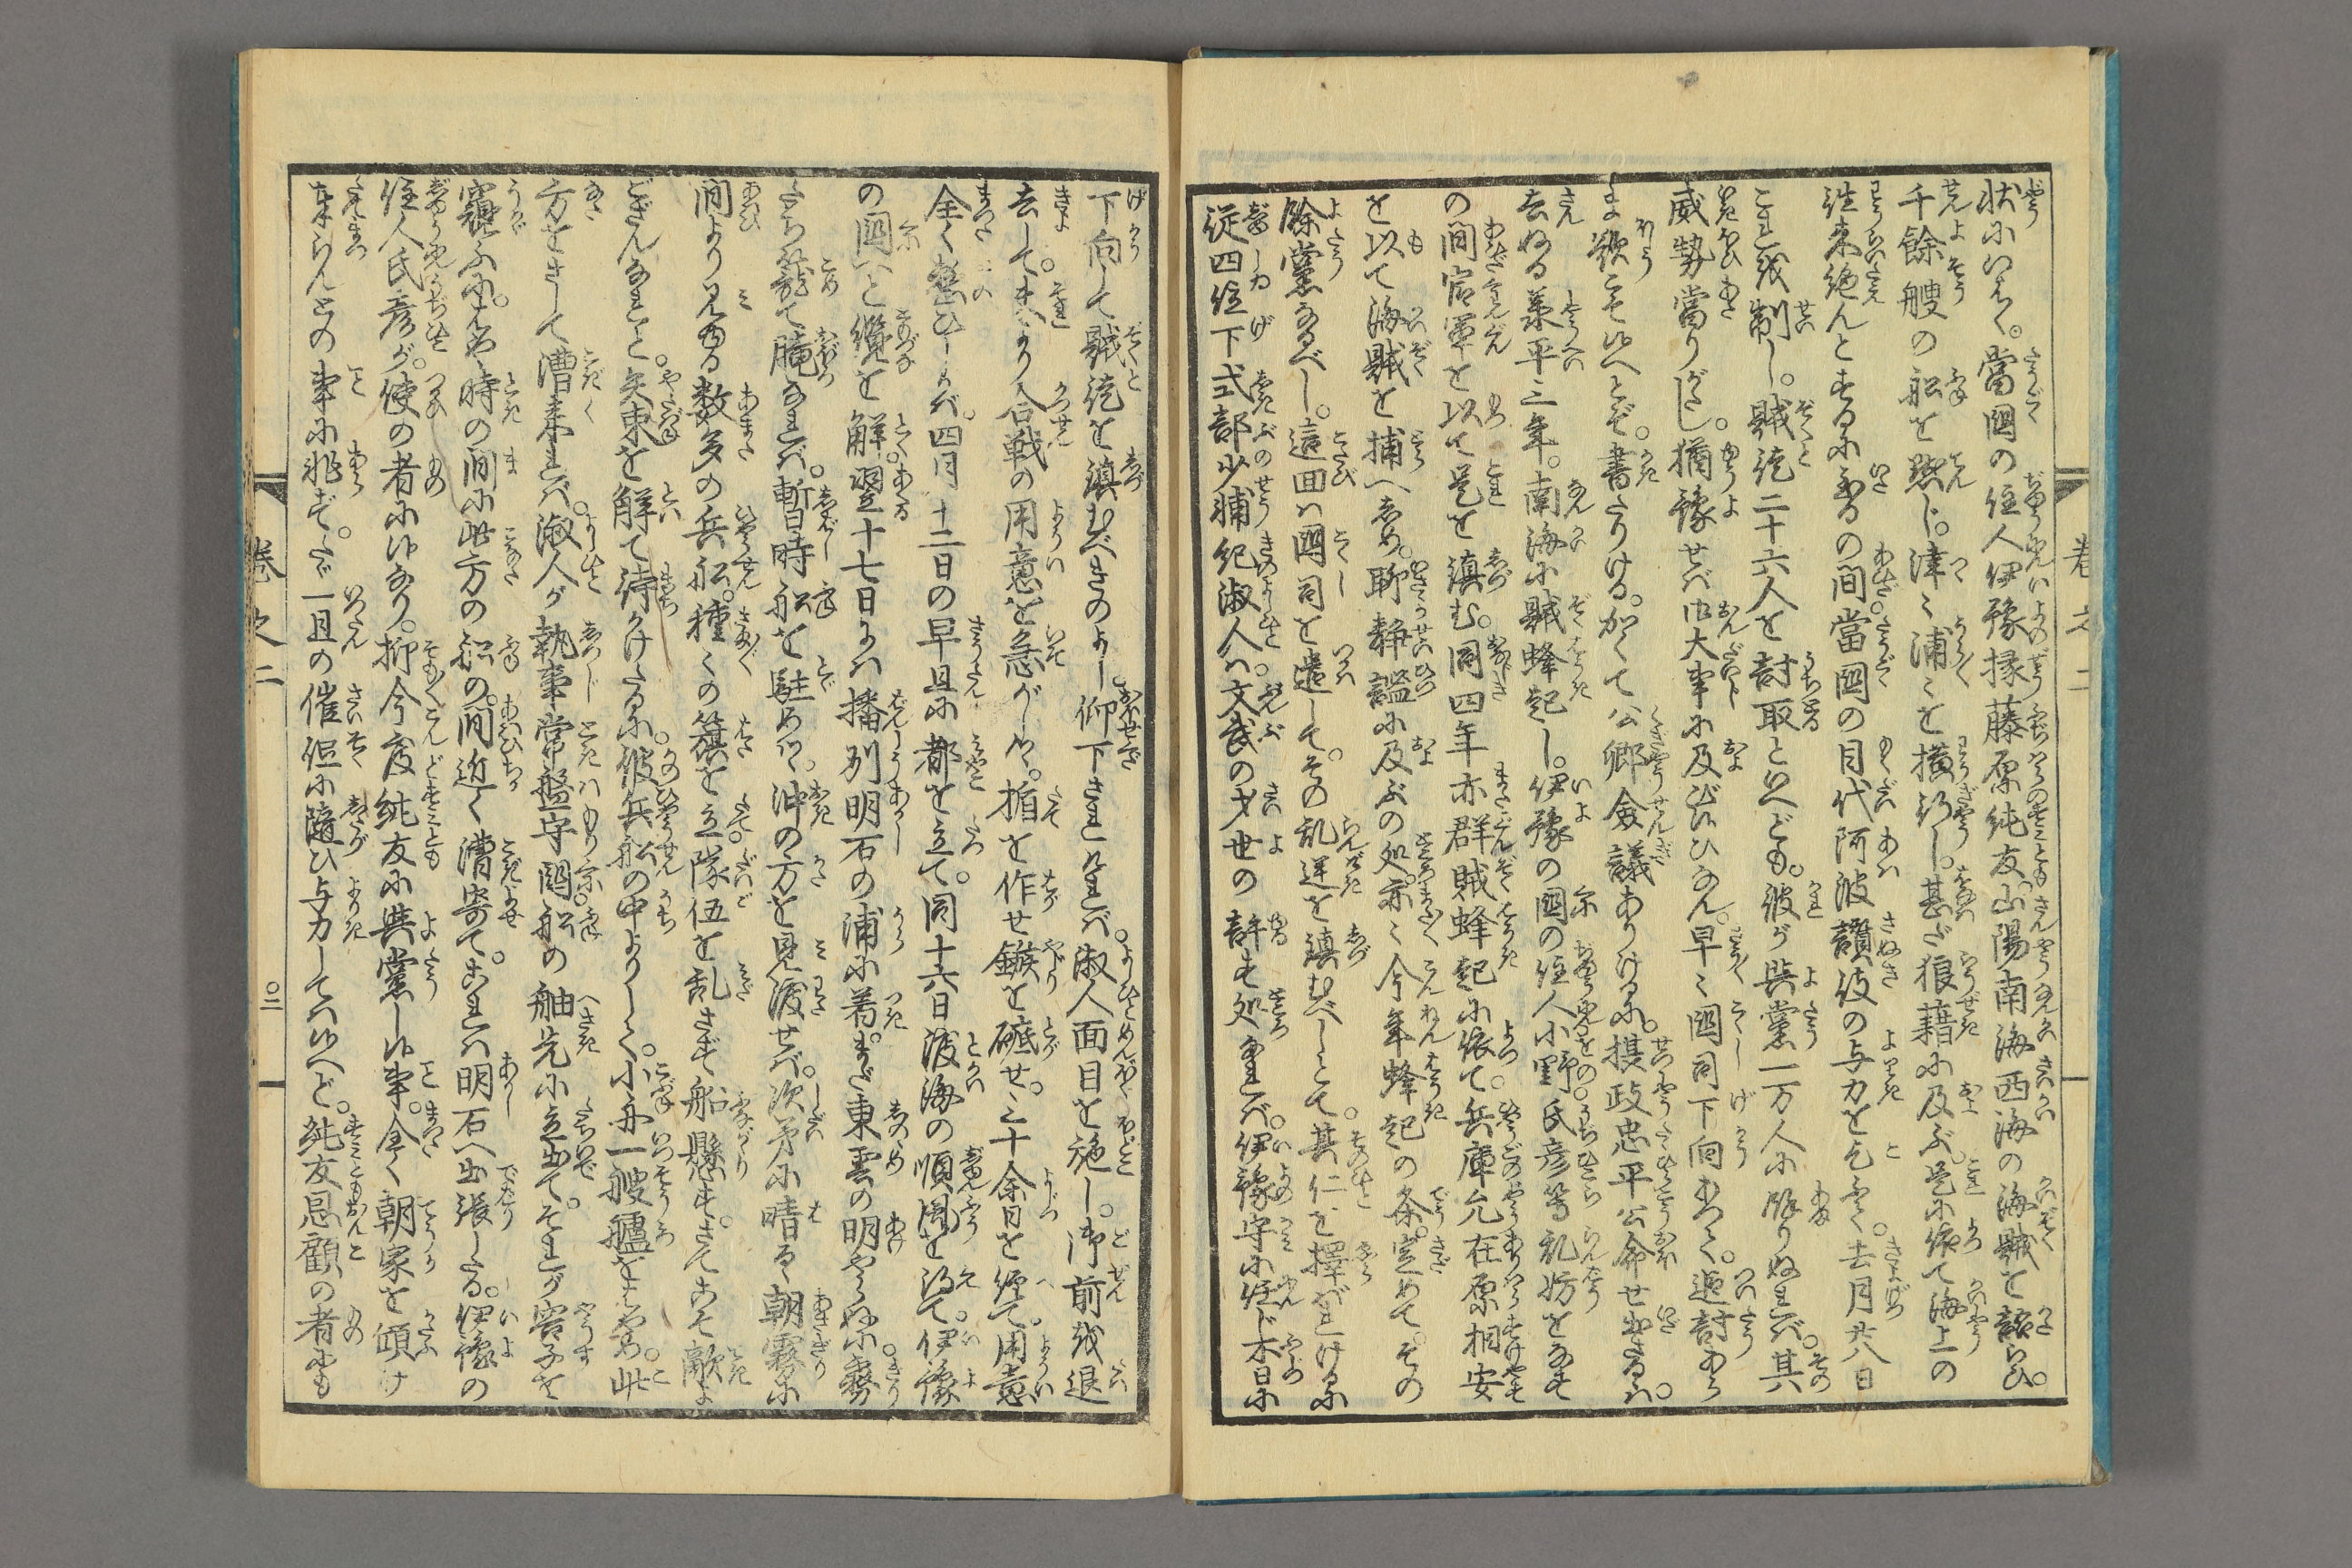 状にいはく。當國の住人伊豫掾藤原純友。山陽南海西海の海賊を語らひ。
千餘艘の舩を點じ。津〻浦〻を横行し。甚だ狼藉に及ぶ。是に依て海上の
往来絶んとする。に至るの間。當國の目代阿波讃岐の与力を乞て。去月廿八日
これを制し。賊徒二十六人を討取といへども。彼が與黨一万人に餘りぬれば。其
威勢當りがたし。猶豫せば御大事に及びひなん。早〻國司下向あつて。追討あら
まほしうこそ候へとぞ。書たりける。かくて公卿僉議ありけるに。摂政忠平公命せ出さるゝは。
去ぬる承平三年。南海に賊蜂起し。伊豫の國の住人小野氏彦等乱妨をなす
の間官軍を以て是を鎮む。同四年亦群賊蜂起に依て。兵庫允在原相安
を以て海賊を捕へしめ。聊静謐に及ぶの処。亦〻今年蜂起の条。定めて。その
餘黨なるべし。這回は國司を遣して。その乱逆を鎮むべしとて。其仁を擇ばれけるに
従四位下式部少輔紀淑人は。文武の才世の許す処なれば。伊豫守に任じ不日に
下向して賊徒を鎮むべきのよし。仰下されければ。淑人面目を施し。御前を退
去して。それより合戦の用意を急がしつ。楯を作せ鏃を磨せ。三十余日を經て。用意
全く整ひしかば。四月十二日の早旦に都を立て。同十六日渡海の順風を得て。伊豫
の國へと纜を解。翌十七日には播州明石の浦に着。まだ東雲の明やらぬに。霧
たち籠て朧なれば。暫時舩を駐めつゝ。沖の方を見渡せば。次第に晴るゝ朝霧の
間より見ゆる数多の兵舩。種〻の籏を立。隊伍を乱さず船懸す。さてこそ敵よ
ござんなれと。矢束を解て待かけたるに。彼兵舩の中よりして。小舟一艘艫をはやめ。此
方をさして漕来れば。淑人が執事常盤守國舩の舳先に立出て。それが容子を
窺ふに。はや時の間に此方の舩の。間近く漕寄て。これは明石へ出張したる。伊豫の
住人氏彦が。使の者に候なり。抑今度純友に與黨し候事。全く朝家を傾け
奉らんとの事に非ず。たゞ一旦の催促に隨ひ与力しては候へど。純友恩顧の者にも
巻之二
巻之二
〇二